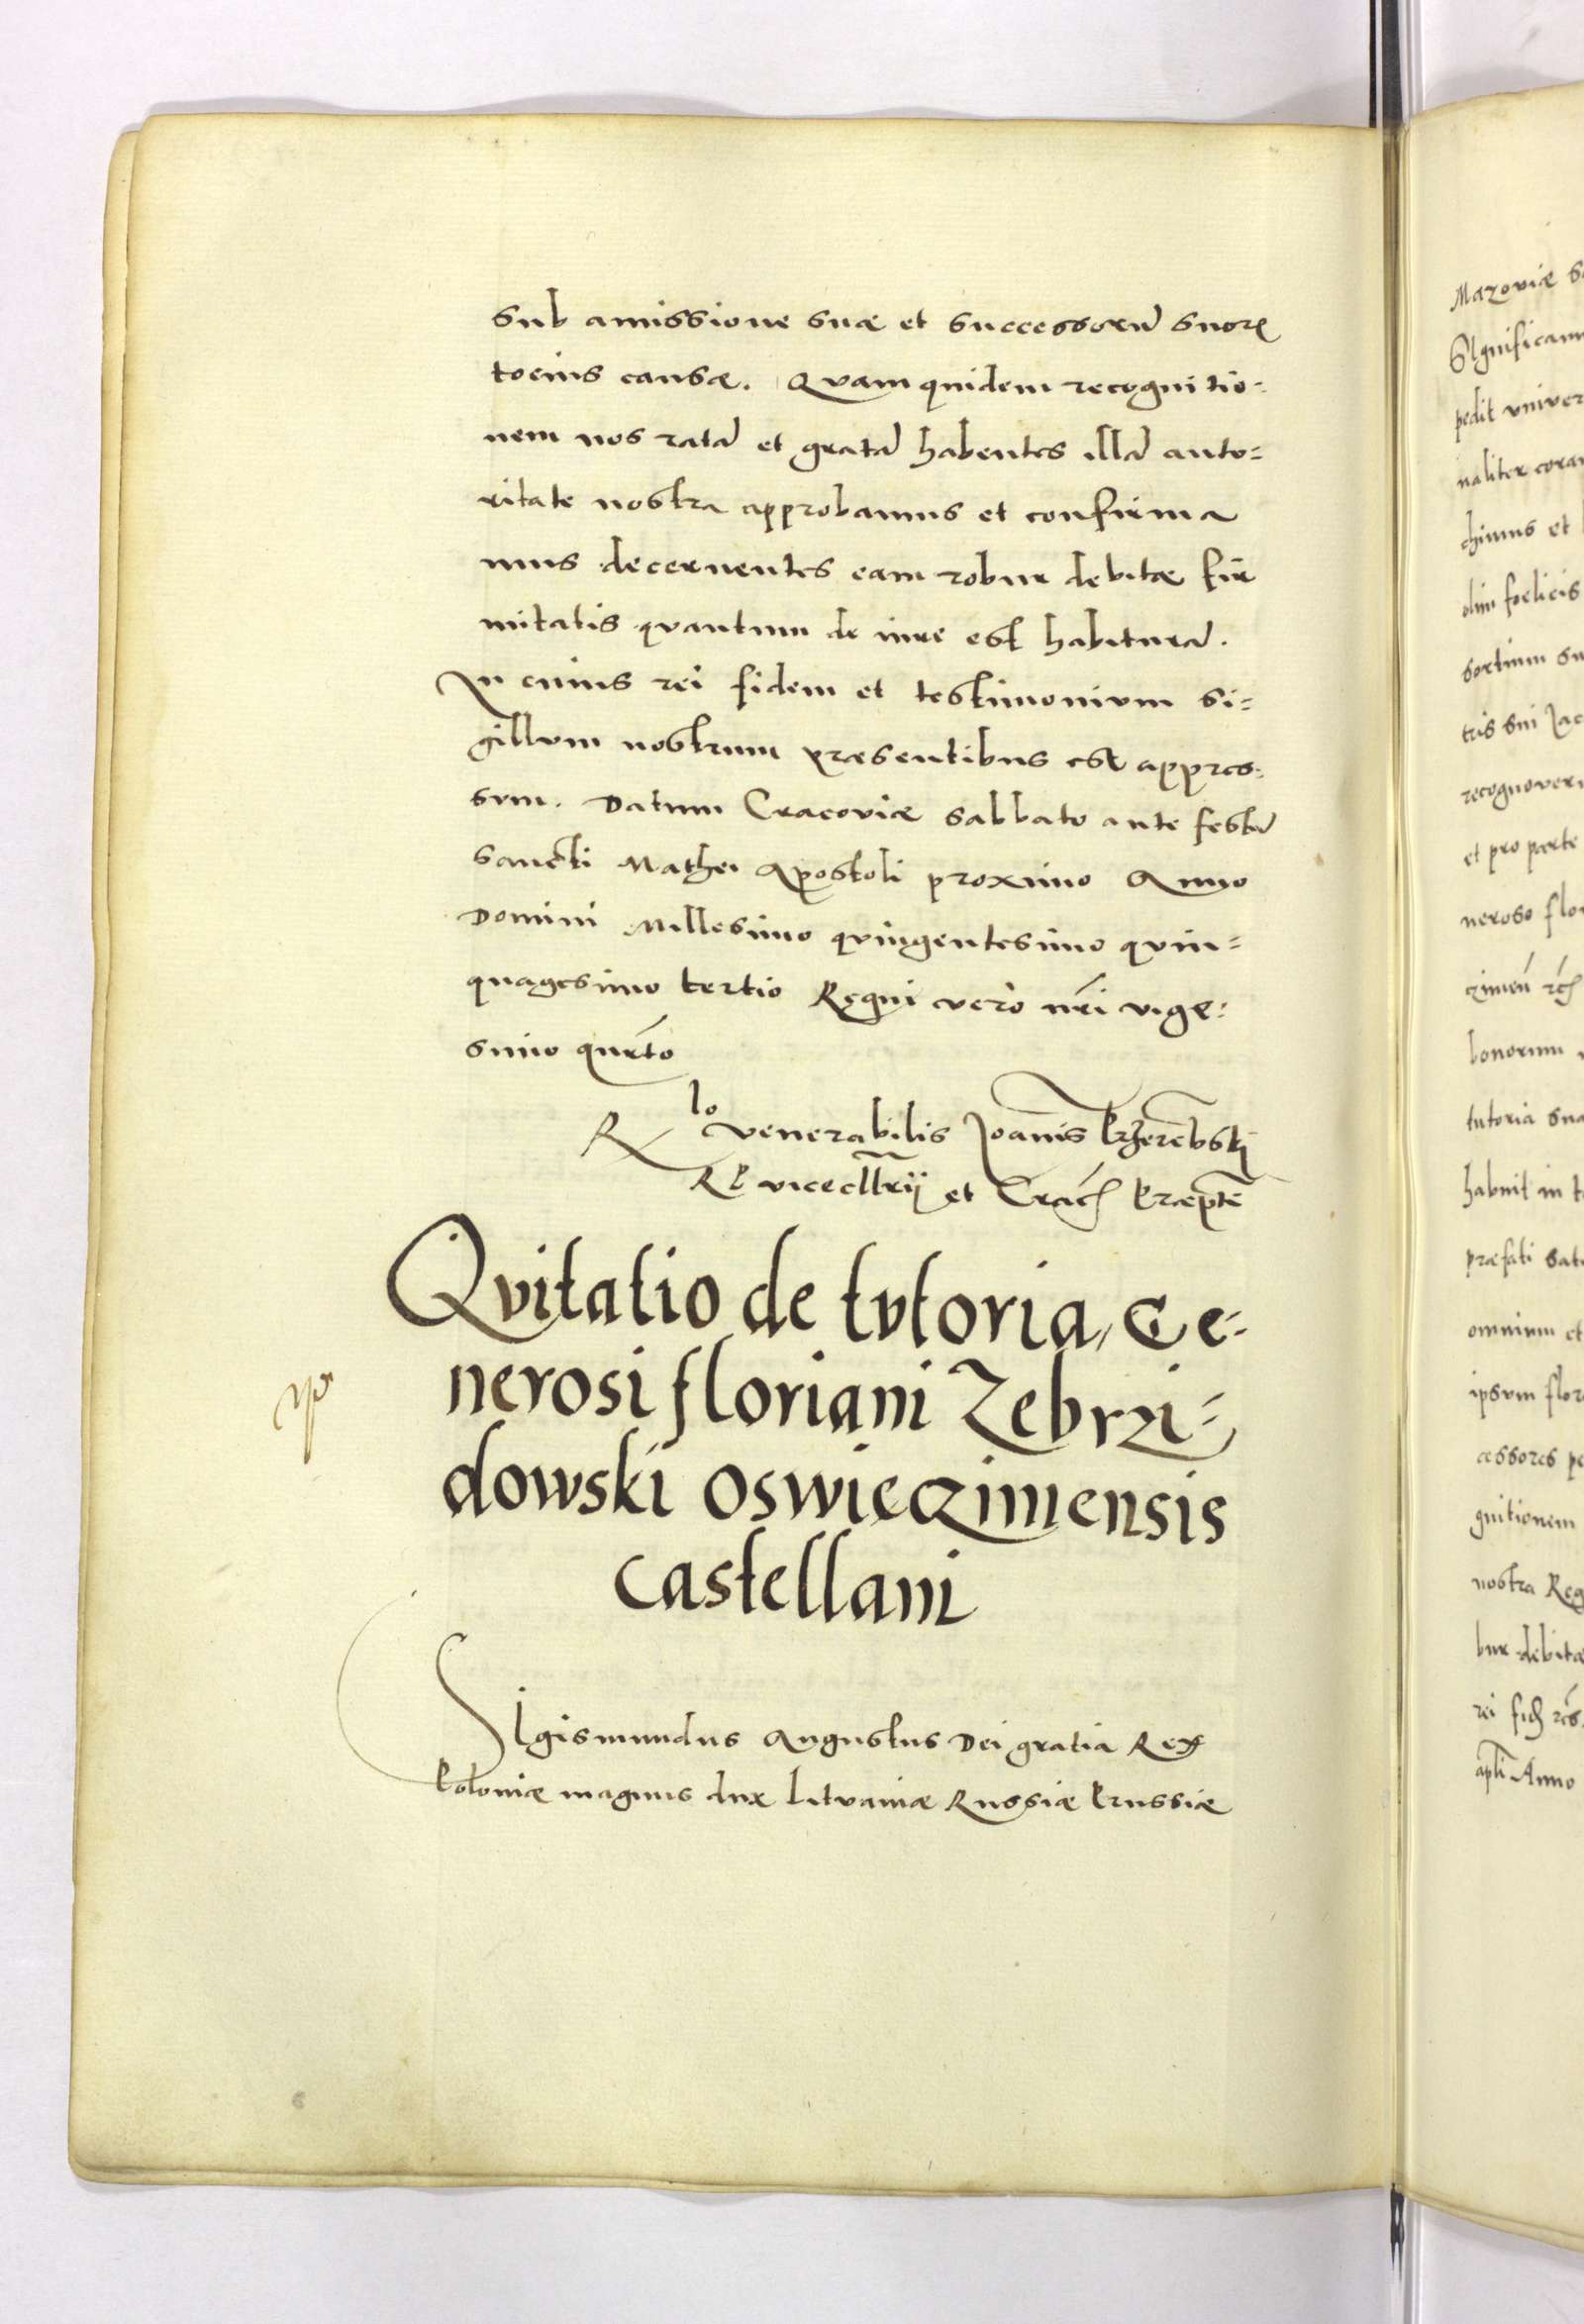 sub amissione suæ et successorũ suorꝝ
tocius causæ. Quam quidem recognitio=
nem nos ratã et gratã habentes illã auto=
ritate nostra approbamus et confirma
mus decernentes eam robur debitæ fir
mitatis quantum de iure est habiturã.
In cuius rei fidem et testimonium si=
gillum nostrum præsentibus est appres=
sum. Datum Cracoviæ sabbato ante festũ
sancti Mathei Apostoli proximo Anno
Domini Millesimo quingentesimo quin=
quagesimo tertio Regni vero nr̃i vige=
simo quarto
Rlo venerabilis Joannis Przerembski
RP vicecllrij et Crac̃ Præpti
Quitatio de tutoria, Ge=
nerosi floriani Zebrzi=
dowski oswięczimensis
castellani
SIgismundus Augustus Dei gratia Rex
Poloniæ magnus dux Lituaniæ Russiæ Prussiæ
Mazoviæ
SIgnificam
pedit univer
naliter cora
chivus et
olim foelicis
sortium su
tris sui Jac
recognover
et pro parte
neroso flo
bonorum
tutoria sua
habuit in
præfati
omnium et
ipsum flor
cessores pe
gnitionem
nostra Reg
bur debitæ
apli Anno